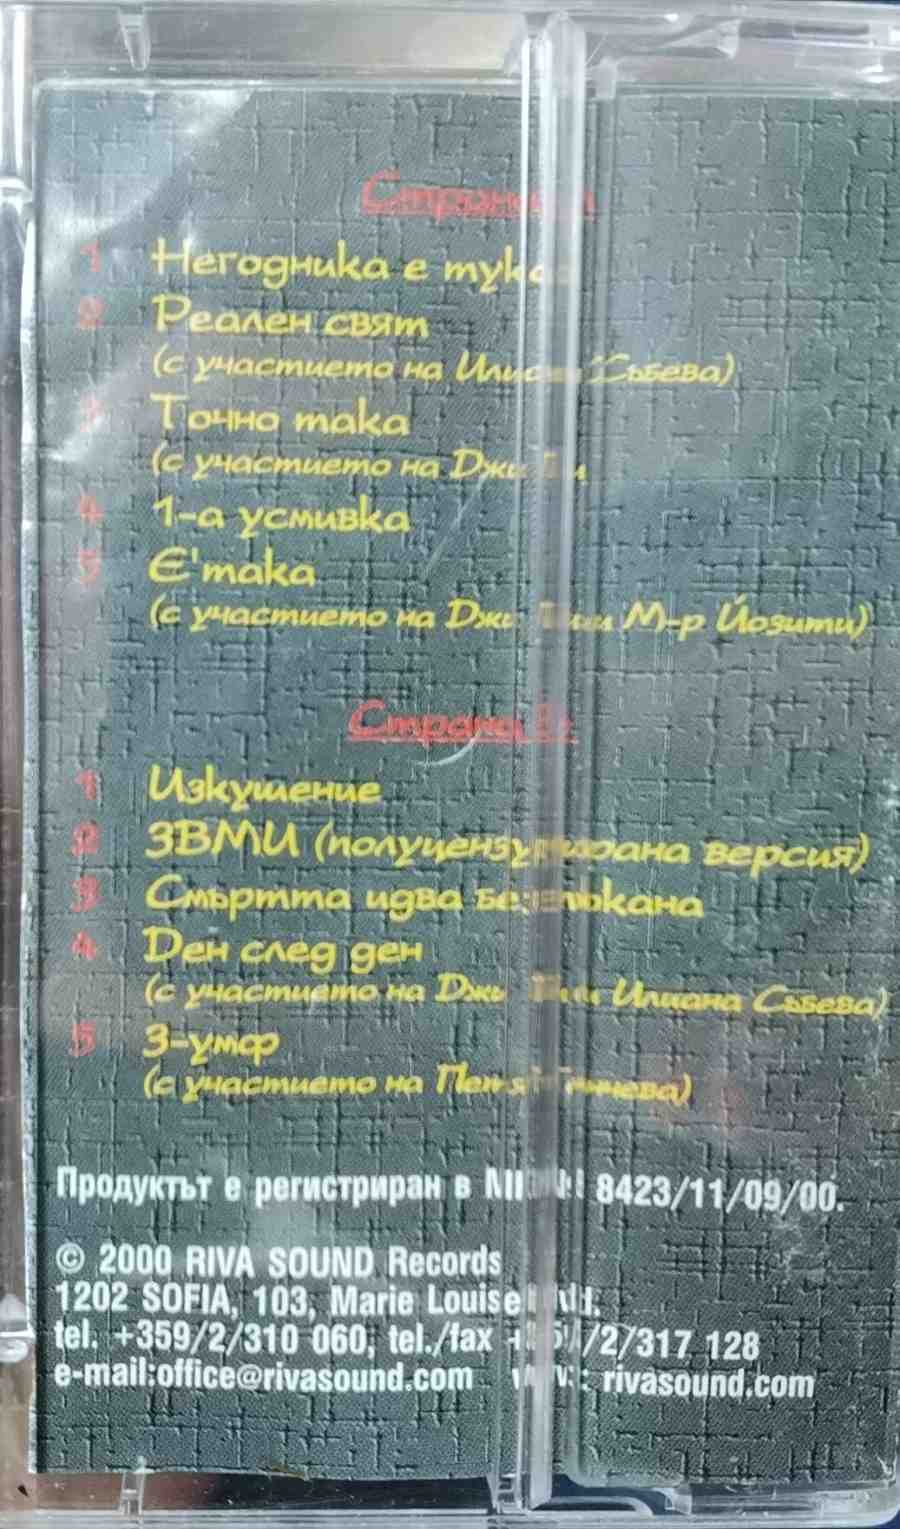 Страна
1 Негодника е тука
2 Реален свят
(с участието на Илиана Събева)
3 Точно така
(с участието на Джи
4 1-а усмивка
5 Є'така
(с участието на Джи и М-р Йозити)
Страна
1 Изкушение
2 ЗВМИ (полуцензурирана версия)
3 Смъртта идва
4 Ден след ден
(с участието на Джи и Илиана Събева)
5 3-умф
(с участието на Пенчева)
Продуктът е регистриран в 8423/11/09/00.
© 2000 RIVA SOUND Records
1202 SOFIA, 103, Marie Louise
tel. +359/2/310 060, tel./fax /2/317 128
e-mail:office@rivasound.com rivasound.com